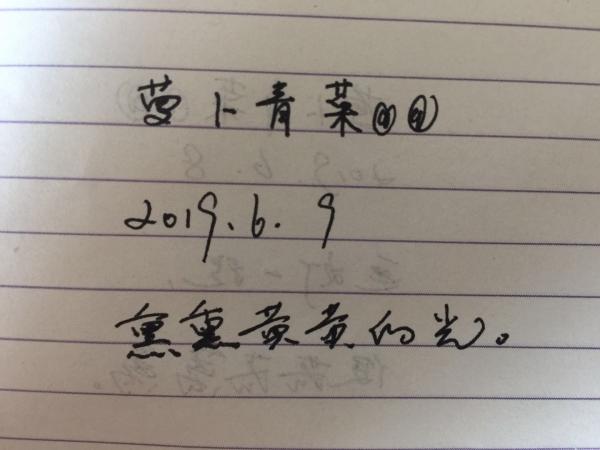 萝卜青菜
2019.6.9
熏熏黄黄的光。